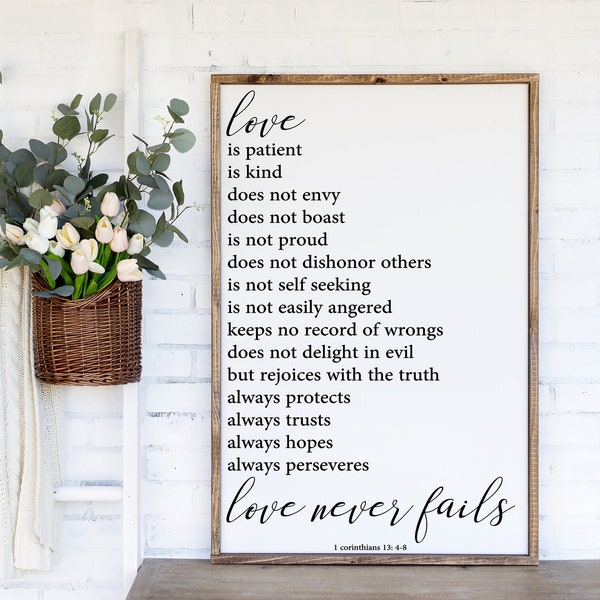 love
is patient
is kind
does not envy
does not boast
is not proud
does not dishonor others
is not self seeking
is not easily angered
keeps no record of wrongs
does not delight in evil
but rejoices with the truth
always protects
always trusts
always hopes
always perseveres
love never fails
1 corinthians 13: 4-8